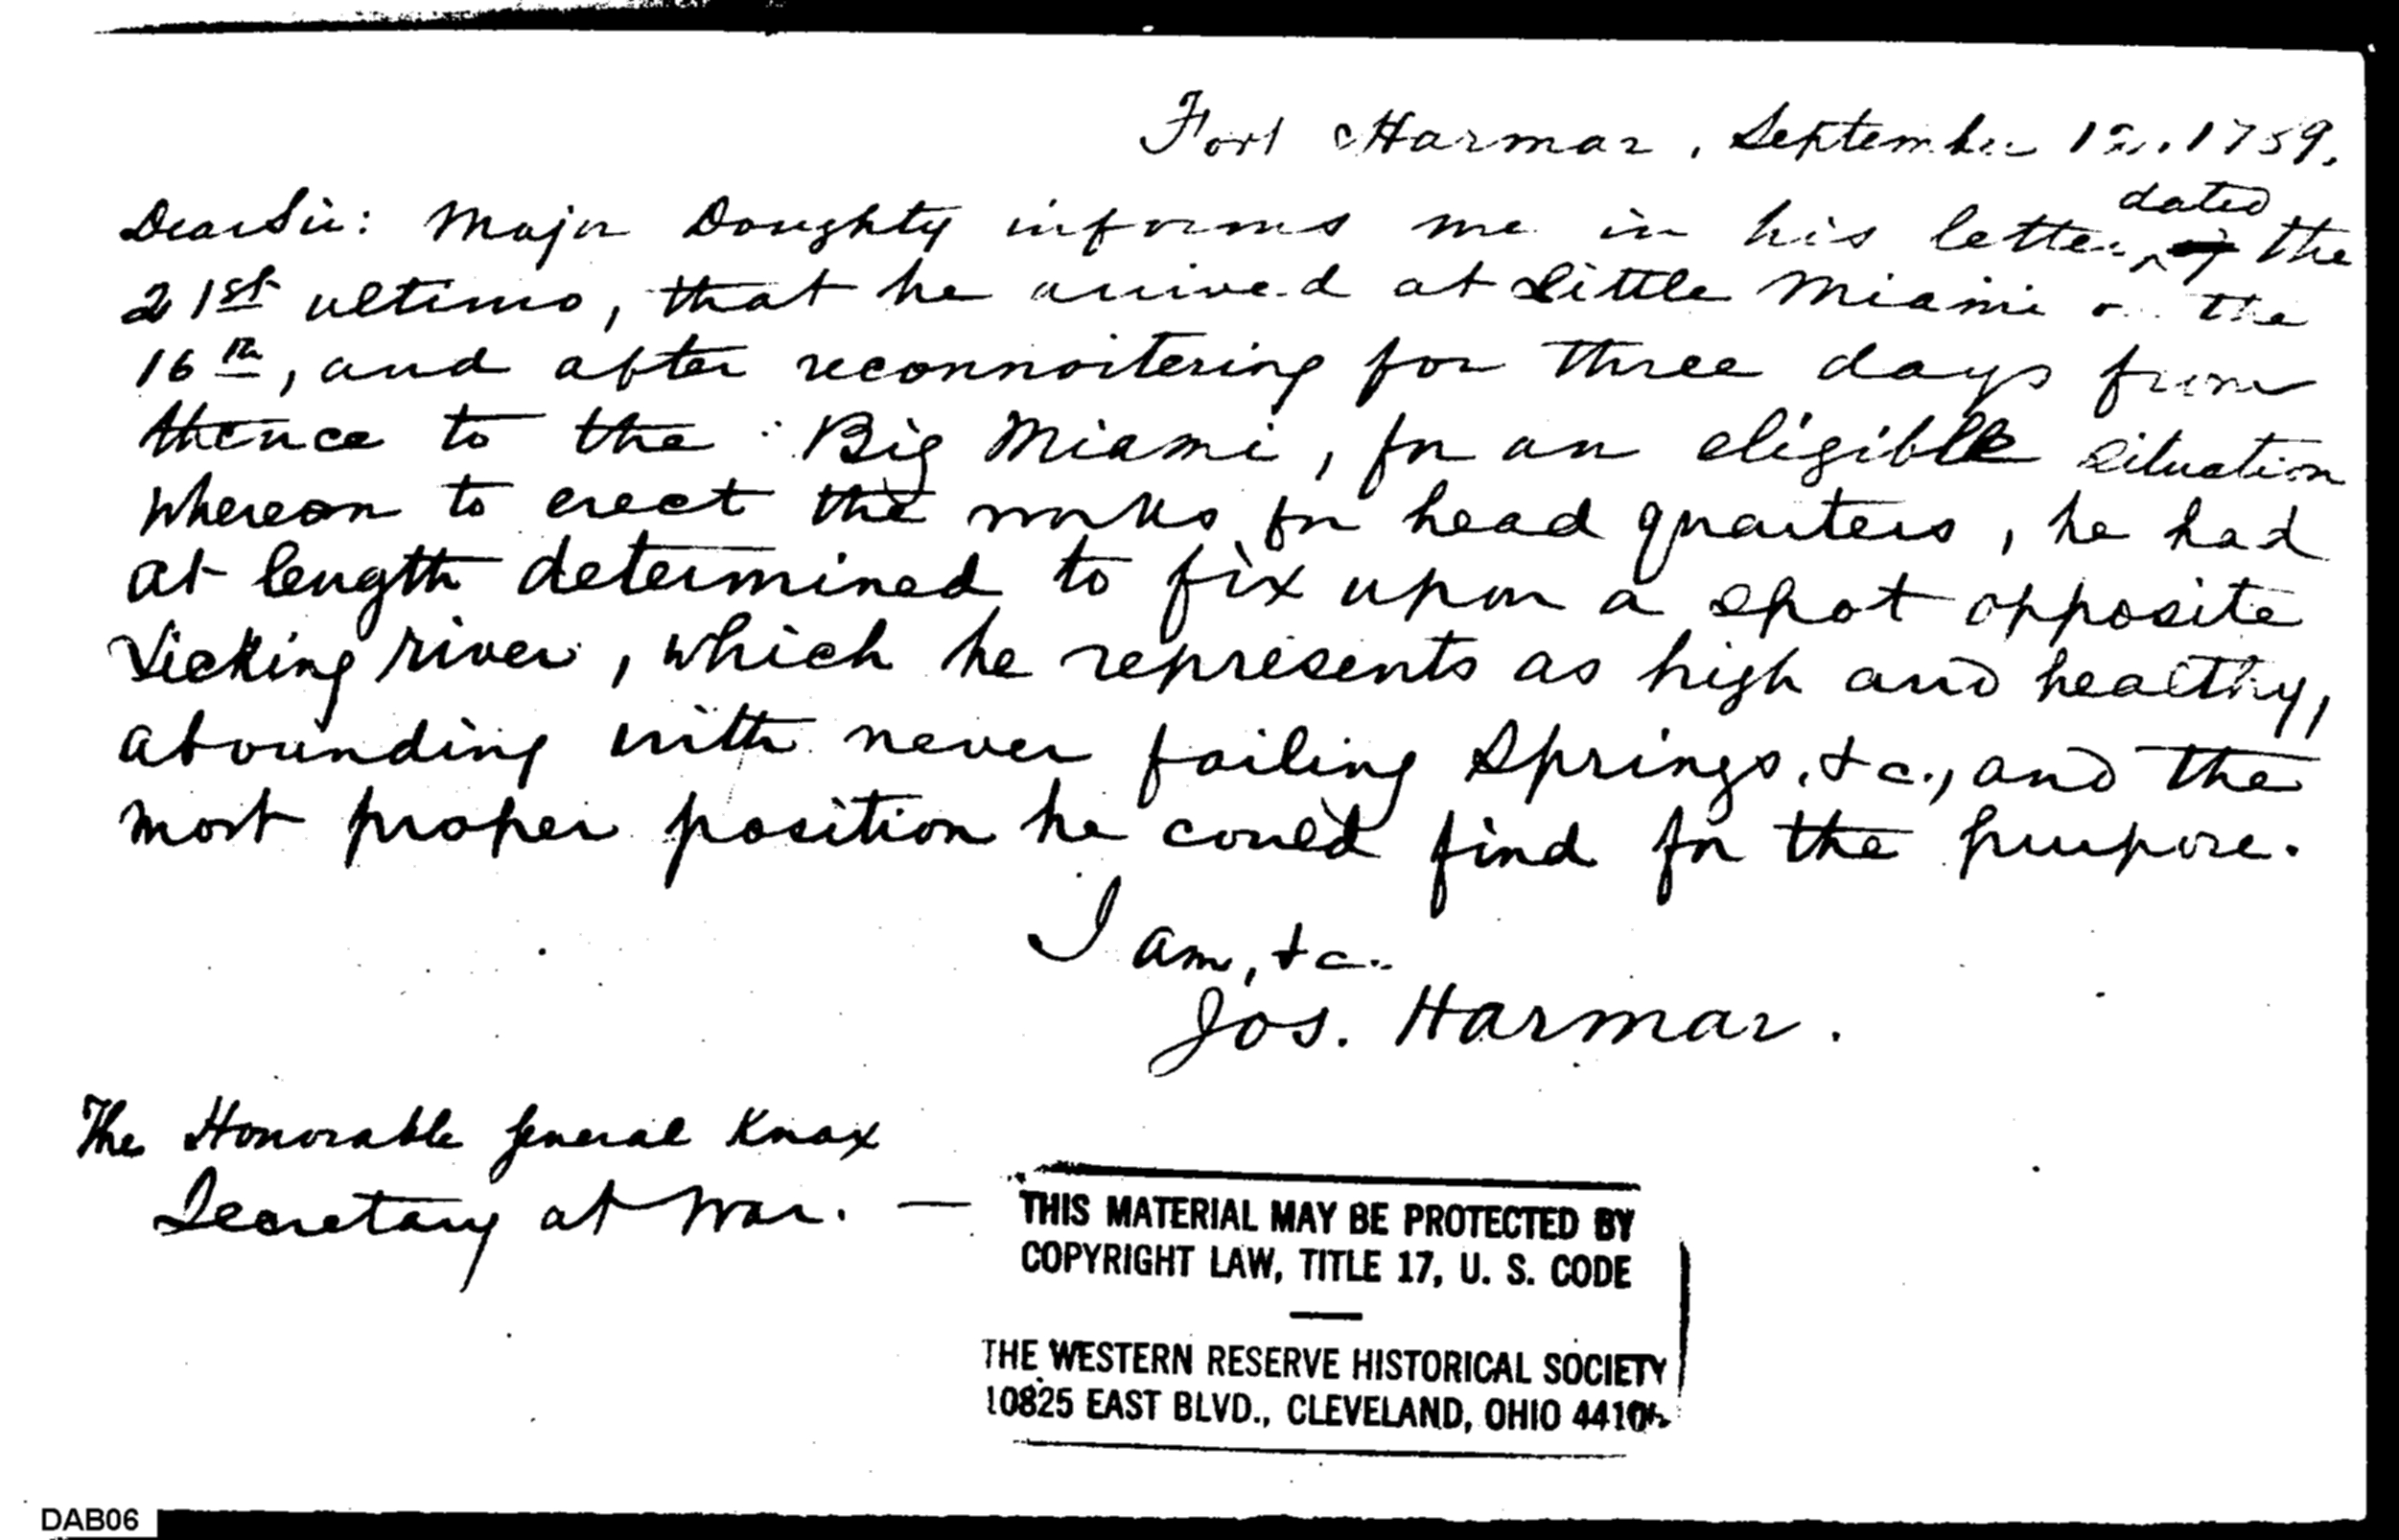 Fort Harmar, September 12, 1789.
dated
Dear Sir: Major Doughty informs me in his letter the
21st ultimo, that he arrived at Little Miami on the
16th, and after reconnoitering for three days from
thence to the Big Miami, for an eligible situation
whereon to erect the works for head quarters, he had
at length determined to fix upon a spot opposite
Licking river, which he represents as high and healthy,
abounding with never failing springs, &c., and the
most proper position he could find for the purpose.
I am, &c.
Jos. Harmar.
The Honorable General Knox
Secretary at War. —
THIS MATERIAL MAY BE PROTECTED BY
COPYRIGHT LAW, TITLE 17, U. S. CODE
THE WESTERN RESERVE HISTORICAL SOCIETY
10825 EAST BLVD., CLEVELAND, OHIO
DAB06